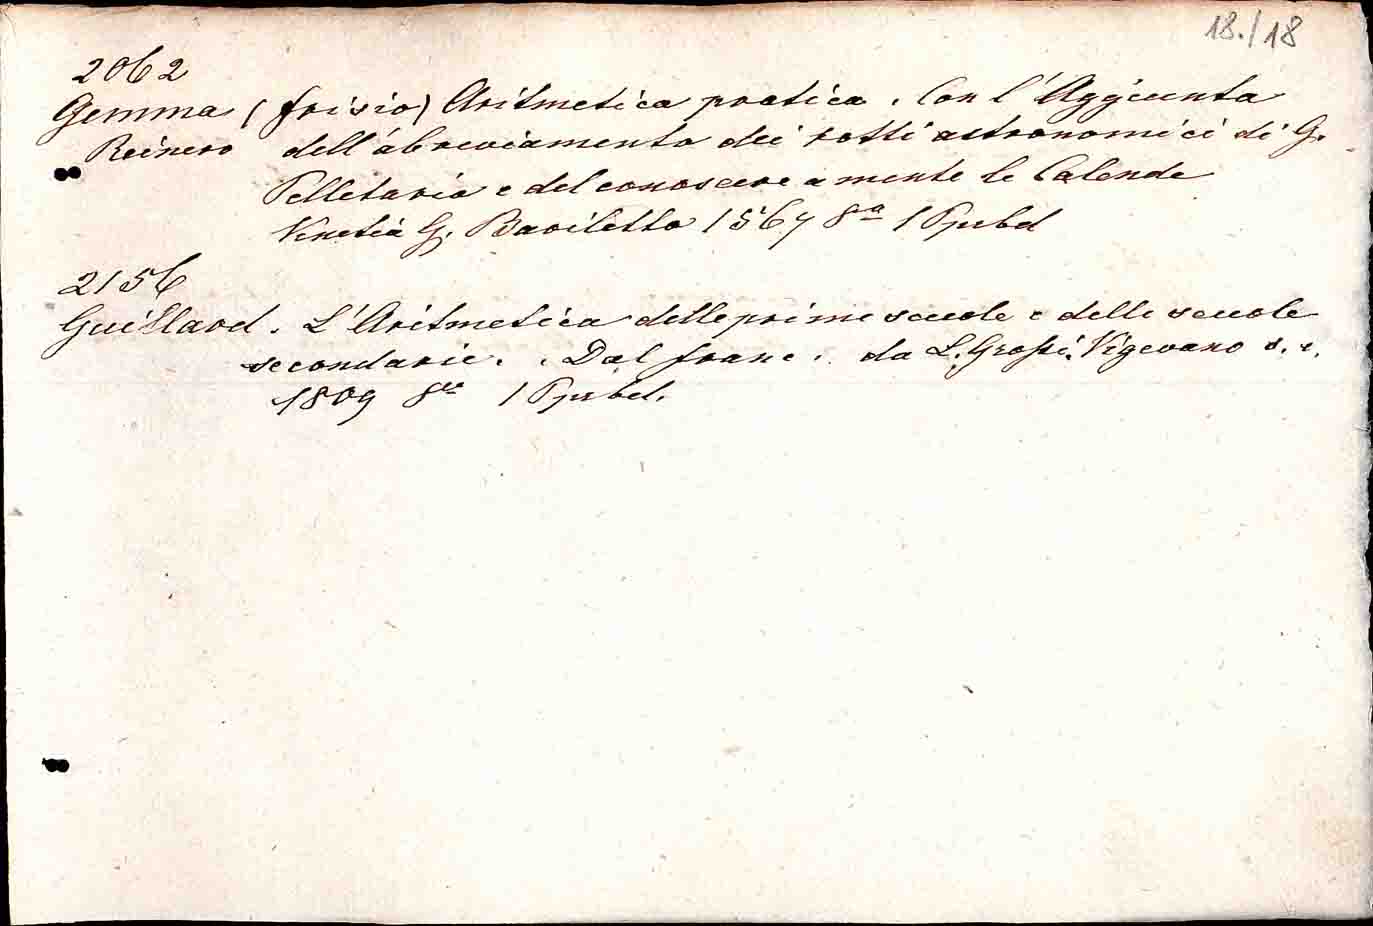 18./18
2062
Gemma (frisio) Aritmetica pratica. Con l'Aggiunta
Reinero dell'abreviamento dei rotti astronomici di G.
Pelletario e del conoscere a mente le Calende
Venetia G. Bariletto 1567 8º 1 Pprbd
2156
Guillard. L'Aritmetica delle prime scuole e delle scuole
secondarie. Dal franc. da L. Grossi. Vigevano s. e.
1809 8º 1 Pprbd.